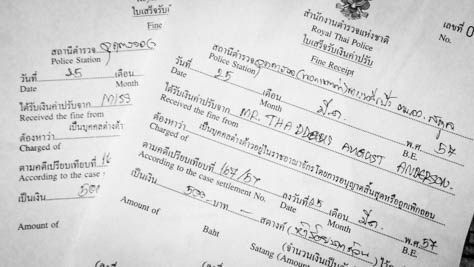 สำนักงานตำรวจแห่งชาติ
Royal Thai Police
เลขที่ 0
ใบเสร็จรับเงินค่าปรับ
Fine Receipt
สถานีตำรวจ
Police Station)
วันที่ 25 เดือน มี.ค. พ.ศ. 57
Date Month B.E.
ได้รับเงินค่าปรับจาก MR. THADDEUS AUGUST ANDERSON
Received the fine from
ต้องหาว่า เป็นบุคคลต่างด้าวอยู่ในราชอาณาจักรโดยการอนุญาตสิ้นสุดหรือถูกเพิกถอน
Charged of
ตามคดีเปรียบเทียบที่ 167/57 ลงวันที่ 25 เดือน มี.ค. พ.ศ. 57
According to the case settlement No. Date Month B.E.
เป็นเงิน 500 บาท - สตางค์ (ห้าร้อยบาทถ้วน) ไว้
Amount of Baht Satang (Amount of
(จำนวนเงินเป็น
ใบเสร็จรับเ
Fine
สถานีตำรวจ
Police Station)
วันที่ 25 เดือน
Date Month
ได้รับเงินค่าปรับจาก
Received the fine from
ต้องหาว่า เป็นบุคคลต่างด้า
Charged of
ตามคดีเปรียบเทียบที่ 16
According to the case
เป็นเงิน 500
Amount of